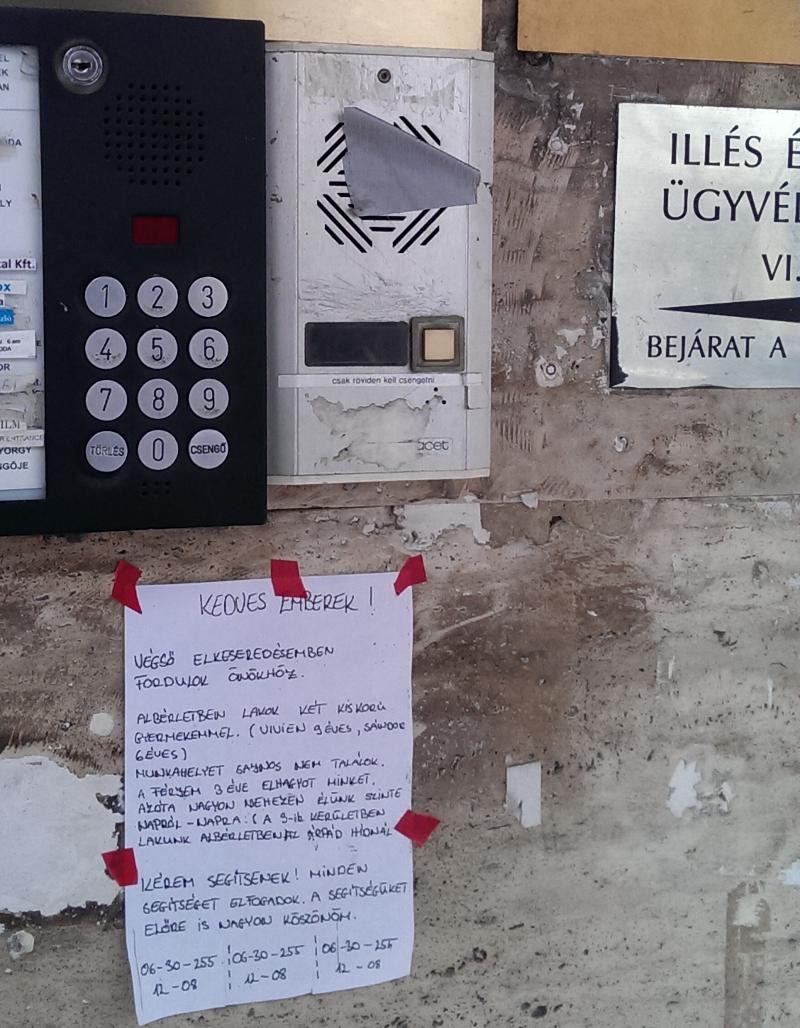 EL
EK
AN
ODA
LY
tal Kft.
OX
ODA
OR
ILM
ENTRANCE
YÖRGY
NGŐJE
1 2 3
4 5 6
7 8 9
TÖRLÉS 0 CSENGŐ
csak röviden kell csengetni
acet
ILLÉS É
ÜGYVÉ
VI.
BEJÁRAT A
KEDVES EMBEREK !
VÉGSŐ ELKESEREDÉSEMBEN
FORDULOK ÖNÖKHÖZ.
ALBÉRLETBEN LAKOK KÉT KISKORÚ
GYERMEKEMMEL. ( VIVIEN 9 ÉVES , SÁNDOR
6 ÉVES )
MUNKAHELYET SAJNOS NEM TALÁLOK.
A FÉRJEM 3 ÉVE ELHAGYOT MINKET.
AZÓTA NAGYON NEHEZEN ÉLÜNK SZINTE
NAPRÓL - NAPRA : ( A 3-ik KERÜLETBEN
LAKUNK ALBÉRLETBEN AZ ÁRPÁD HÍDNÁL
KÉREM SEGÍTSENEK ! MINDEN
SEGÍTSÉGET ELFOGADOK. A SEGÍTSÉGÜKET
ELŐRE IS NAGYON KÖSZÖNÖM.
06-30-255 06-30-255 06-30-255
12-08 12-08 12-08